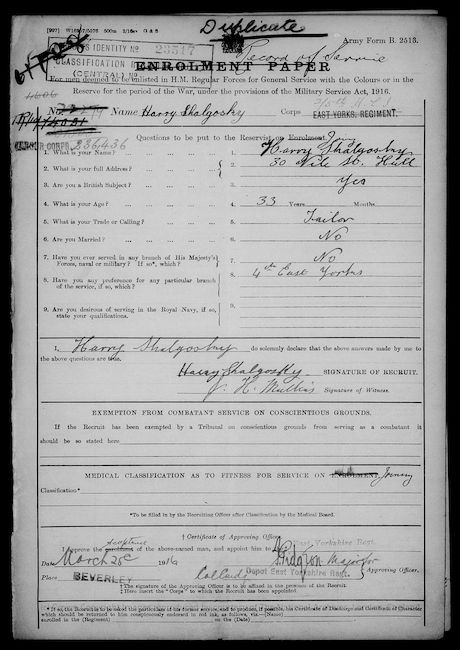 Duplicate
Army Form B. 2513.
IDENTITY No 23517
CLASSIFICATION
(CENTRAL) No
Record of Service
ENROLMENT PAPER
For men deemed to be enlisted in H.M. Regular Forces for General Service with the Colours or in the
Reserve for the period of the War, under the provisions of the Military Service Act, 1916.
Name Harry Shalgosky Corps EAST YORKS: REGIMENT.
LABOUR CORPS 236,436
Questions to be put to the Reservist on Enrolment Joining
1. What is your Name? 1. Harry Shalgosky
2. What is your full Address? 2. 30 Nile St. Hull
3. Are you a British Subject? 3. Yes
4. What is your Age? 4. 33 Years Months.
5. What is your Trade or Calling? 5. Tailor
6. Are you Married? 6. No
7. Have you ever served in any branch of His Majesty's
Forces, naval or military? If so*, which? 7. No
8. Have you any preference for any particular branch
of the service, if so, which? 8. 4th East Yorks
9. Are you desirous of serving in the Royal Navy, if so,
state your qualifications. 9.
I, Harry Shalgosky do solemnly declare that the above answers made by me to
the above questions are true.
Harry Shalgosky SIGNATURE OF RECRUIT.
J. H. Mullins Signature of Witness.
EXEMPTION FROM COMBATANT SERVICE ON CONSCIENTIOUS GROUNDS.
If the Recruit has been exempted by a Tribunal on conscientious grounds from serving as a combatant it
should be so stated here
MEDICAL CLASSIFICATION AS TO FITNESS FOR SERVICE ON ENROLMENT Joining
Classification*
*To be filled in by the Recruiting Officer after Classification by the Medical Board.
† Certificate of Approving Officer.
I approve the enrolment acceptance of the above-named man, and appoint him to the ‡ East Yorkshire Regt.
Date March 25 1916 Major for
Place BEVERLEY Depot East Yorkshire Regt. Approving Officer.
† The signature of the Approving Officer is to be affixed in the presence of the Recruit.
‡ Here insert the "Corps" to which the Recruit has been appointed.
* If so, the Recruit is to be asked the particulars of his former service, and to produce, if possible, his Certificate of Discharge and Certificate of Character
which should be returned to him conspicuously endorsed in red ink, as follows, viz.
enrolled in the (Regiment) on the (Date)